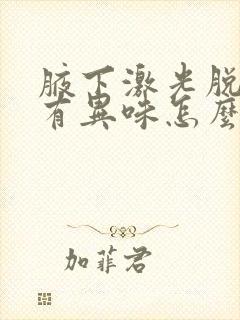 腋下激光脱
有異味怎麼
加菲君